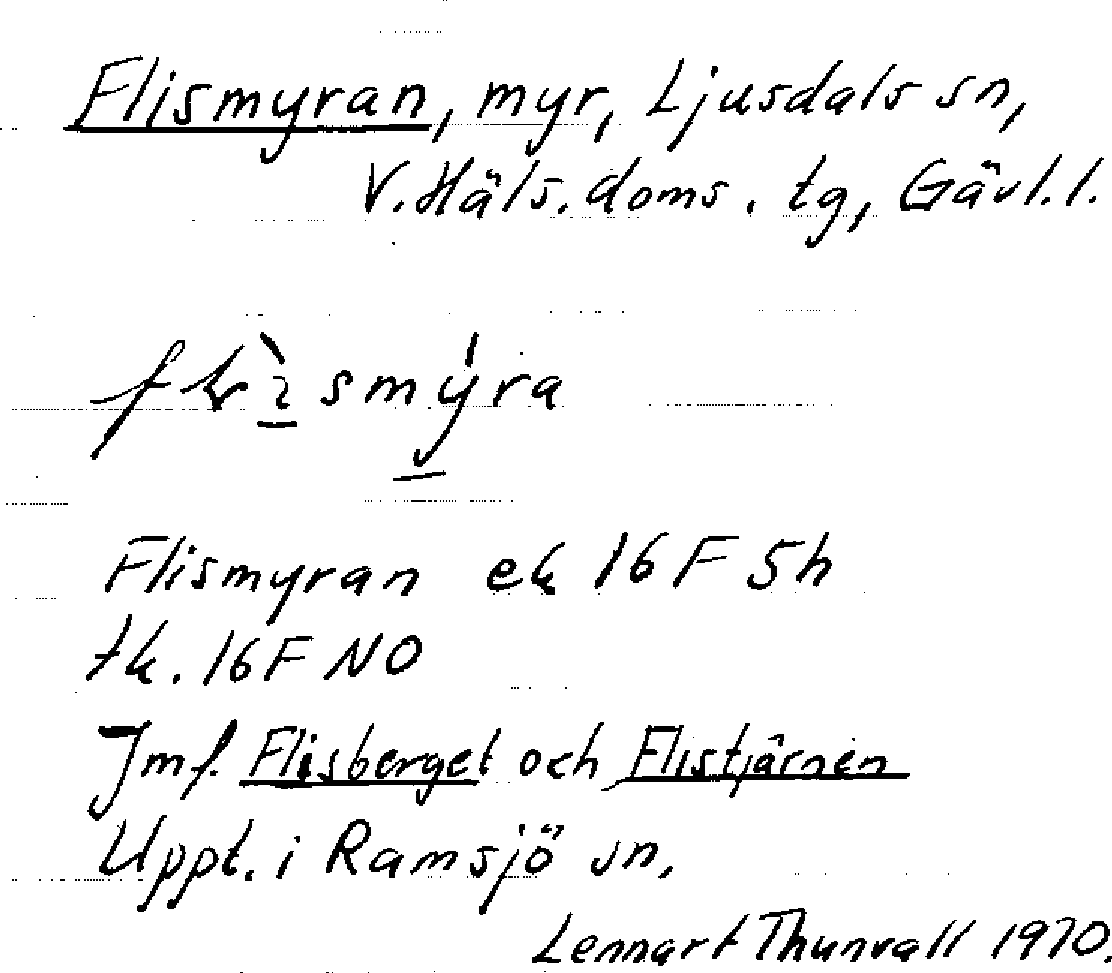 Flismyran, myr, Ljusdals sn,
V. Häls. doms. tg, Gävl. l.
Flismyran ek 16 F 5h
tk. 16 F NO
Jmf. Flisberget och Flistjärnen
Uppt. i Ramsjö sn.
Lennart Thunvall 1970.